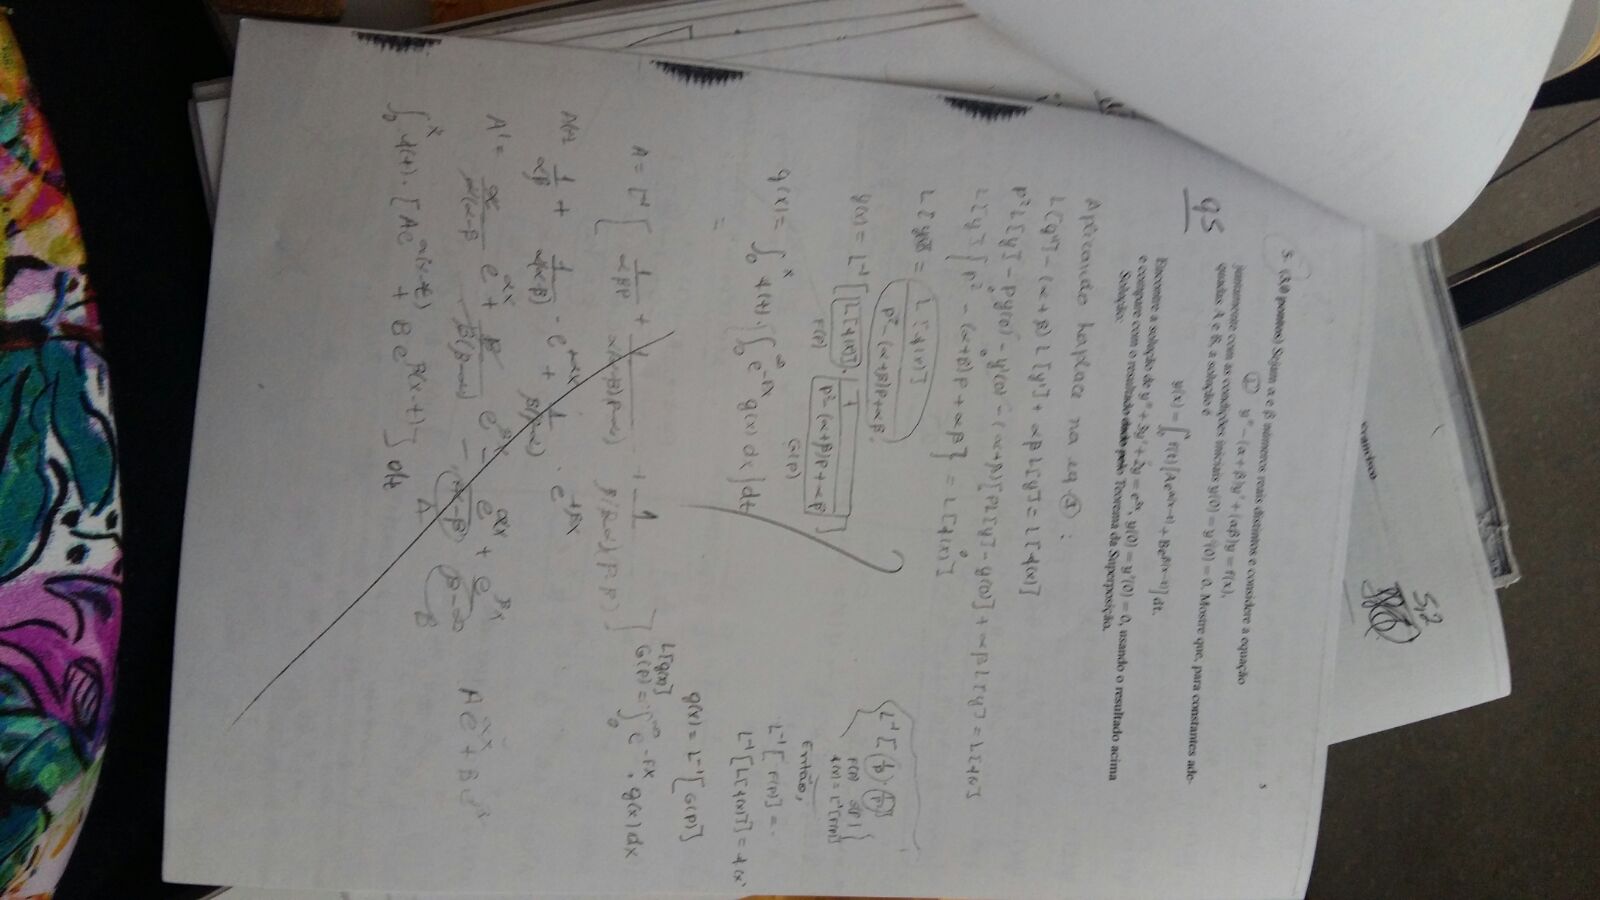 5
5. (3,0 pontos) Sejam α e β números reais distintos e considere a equação
① y'' − (α + β)y' + (αβ)y = f(x),
juntamente com as condições iniciais y(0) = y'(0) = 0. Mostre que, para constantes ade-
quadas A e B, a solução é
y(x) = ∫₀ˣ f(t)[Ae^{α(x−t)} + Be^{β(x−t)}] dt.
Encontre a solução de y'' + 3y' + 2y = e^{3x}, y(0) = y'(0) = 0, usando o resultado acima
e compare com o resultado dado pelo Teorema da Superposição.
Solução:
q5
Aplicando Laplace na eq ①:
L[y''] − (α+β) L[y'] + αβ L[y] = L[f(x)]
p² L[y] − py(0) − y'(0) − (α+β)[pL[y] − y(0)] + αβ L[y] = L[f(x)]
L[y] {p² − (α+β)p + αβ} = L[f(x)]
L[y] = L[f(x)] / p² − (α+β)p + αβ
y(x) = L⁻¹[L[f(x)] · 1 / p² − (α+β)p + αβ]
F(p) G(p)
y(x) = ∫₀ˣ f(t) · {∫₀^∞ e^{−px} g(x) dx} dt
=
L⁻¹[
F(p)
f(x) = L⁻¹[F(p)]
Então,
L⁻¹[F(p)] =
L⁻¹[L[f(x)]] = f(x
g(x) = L⁻¹[G(p)]
L[g(x)]
G(p) = ∫₀^∞ e^{−px} · g(x) dx
A = L⁻¹[1/αβp +
1/αβ + 1/α(α−β) · e^{αx} + 1/β(β−α) · e^{+βx}
A' = α/α(α−β) e^{αx} + β/β(β−α) e^{βx} = e^{αx}/α−β + e^{βx}/β−α
A B
Ae^{αx} + Be^{βx}
∫₀ˣ f(t) · [Ae^{α(x−t)} + Be^{β(x−t)}] dt
5,2